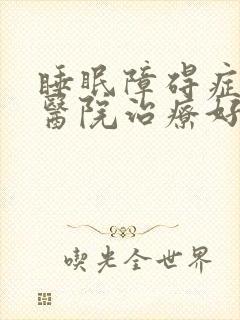 睡眠障碍症
醫院治療好
喫光全世界